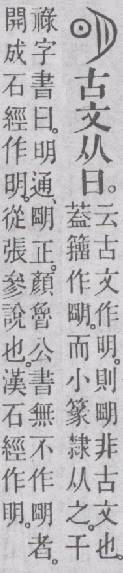 明古文从日。
云古文作明。則朙非古文也。
蓋籒作朙。而小篆隸从之。干
祿字書曰。明通、朙正。顏魯公書無不作朙者。
開成石經作明。從張參說也。漢石經作明。